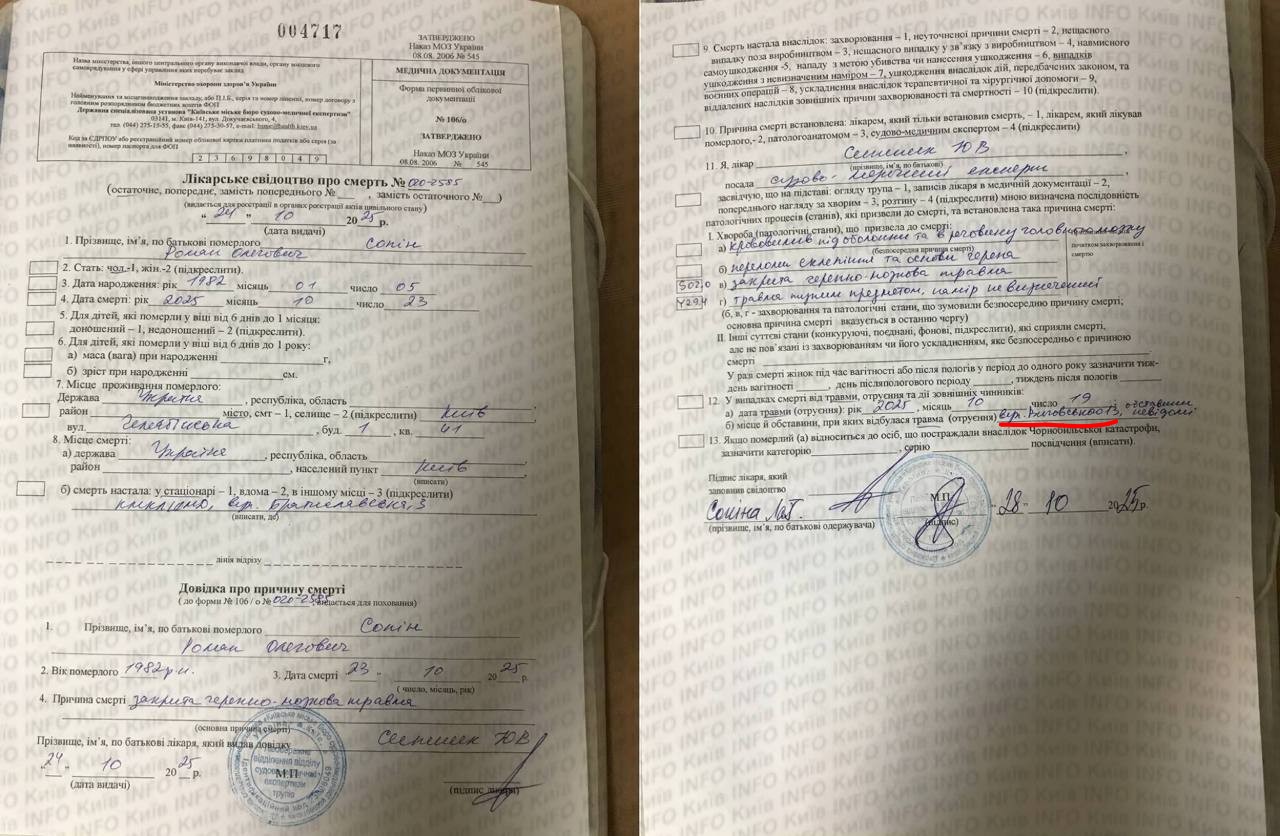 004717
ЗАТВЕРДЖЕНО
Наказ МОЗ України
08.08. 2006 № 545
Назва міністерства, іншого центрального органу виконавчої влади, органу місцевого
самоврядування у сфері управління яких перебуває заклад
Міністерство охорони здоров'я України
Найменування та місцезнаходження закладу, або П.І.Б., серія та номер ліцензії, номер договору з
головним розпорядником бюджетних коштів ФОП
Державна спеціалізована установа "Київське міське бюро судово-медичної експертизи"
03141, м. Київ-141, вул. Докучаєвського, 4,
тел. (044) 275-15-55, факс (044) 275-30-57, e-mail:
Код за ЄДРПОУ або реєстраційний номер облікової картки платника податків або серія (за
наявності), номер паспорта для ФОП
2 3 6 9 8 0 4 9
МЕДИЧНА ДОКУМЕНТАЦІЯ
Форма первинної облікової
документації
№ 106/о
ЗАТВЕРДЖЕНО
Наказ МОЗ України
08.08. 2006 № 545
Лікарське свідоцтво про смерть № 020-2585
(остаточне, попереднє, замість попереднього №___, замість остаточного №___)
(видається для реєстрації в органах реєстрації актів цивільного стану)
" 24 " 10 2025 р.
(дата видачі)
1. Прізвище, ім'я, по батькові померлого Сопін
Роман Олегович
2. Стать: чол.-1, жін.-2 (підкреслити).
3. Дата народження: рік 1982 місяць 01 число 05
4. Дата смерті: рік 2025 місяць 10 число 23
5. Для дітей, які померли у віці від 6 днів до 1 місяця:
доношений – 1, недоношений – 2 (підкреслити).
6. Для дітей, які померли у віці від 6 днів до 1 року:
а) маса (вага) при народженні ___ г,
б) зріст при народженні ___ см.
7. Місце проживання померлого:
Держава Україна, республіка, область
район ___ місто, смт – 1, селище – 2 (підкреслити) Київ
вул. Челябінська, буд. 1, кв. 41
8. Місце смерті:
а) держава Україна, республіка, область
район ___, населений пункт Київ
(вписати)
б) смерть настала: у стаціонарі – 1, вдома – 2, в іншому місці – 3 (підкреслити)
вул. Братиславська, 3
(вписати, де)
лінія відрізу
Довідка про причину смерті
( до форми № 106 / о № 020-2585, видається для поховання)
1. Прізвище, ім'я, по батькові померлого Сопін
Роман Олегович
2. Вік померлого 1982 р.н. 3. Дата смерті 23 " 10 2025 р.
( число, місяць, рік)
4. Причина смерті закрита черепно-мозкова травма
(основна причина смерті)
Прізвище, ім'я, по батькові лікаря, який видав довідку
"24" 10 2025 р.
(дата видачі)
М.П.
(підпис лікаря)
9. Смерть настала внаслідок: захворювання – 1, неуточненої причини смерті – 2, нещасного
випадку поза виробництвом – 3, нещасного випадку у зв'язку з виробництвом – 4, навмисного
самоушкодження -5, нападу з метою убивства чи нанесення ушкодження – 6, випадків
ушкодження з невизначеним наміром – 7, ушкодження внаслідок дій, передбачених законом, та
воєнних операцій – 8, ускладнення внаслідок терапевтичної та хірургічної допомоги – 9,
віддалених наслідків зовнішніх причин захворюваності та смертності – 10 (підкреслити).
10. Причина смерті встановлена: лікарем, який тільки встановив смерть, – 1, лікарем, який лікував
померлого,- 2, патологоанатомом – 3, судово-медичним експертом – 4 (підкреслити)
11. Я, лікар
(прізвище, ім'я, по батькові)
посада судово-медичний експерт,
засвідчую, що на підставі: огляду трупа – 1, записів лікаря в медичній документації – 2,
попереднього нагляду за хворим – 3, розтину – 4 (підкреслити) мною визначена послідовність
патологічних процесів (станів), які призвели до смерті, та встановлена така причина смерті:
I. Хвороба (патологічні стани), що призвела до смерті:
а) крововилив під оболонки та в речовину головного мозку
(безпосередня причина смерті)
початком захворювання і
смертю
б) переломи склепіння та основи черепа
S02,0 в) закрита черепно-мозкова травма
Y29,4 г) травма тупим предметом, намір не визначений
(б, в, г - захворювання та патологічні стани, що зумовили безпосередню причину смерті;
основна причина смерті вказується в останню чергу)
II. Інші суттєві стани (конкуруючі, поєднані, фонові, підкреслити), які сприяли смерті,
але не пов'язані із захворюванням чи його ускладненням, яке безпосередньо є причиною
смерті
У разі смерті жінок під час вагітності або після пологів у період до одного року зазначити тиж-
день вагітності ___, день післяпологового періоду ___, тиждень після пологів ___
12. У випадках смерті від травми, отруєння та дії зовнішніх чинників:
а) дата травми (отруєння): рік 2025, місяць 10 число 19
б) місце й обставини, при яких відбулася травма (отруєння) вул. Виговського 13, обставини невідомі
13. Якщо померлий (а) відноситься до осіб, що постраждали внаслідок Чорнобильської катастрофи,
зазначити категорію ___, серію ___ посвідчення (вписати).
Підпис лікаря, який
заповнив свідоцтво
М.П.
Сопіна
(прізвище, ім'я, по батькові одержувача)
(підпис)
"28" 10 2025 р.
INFO Київ